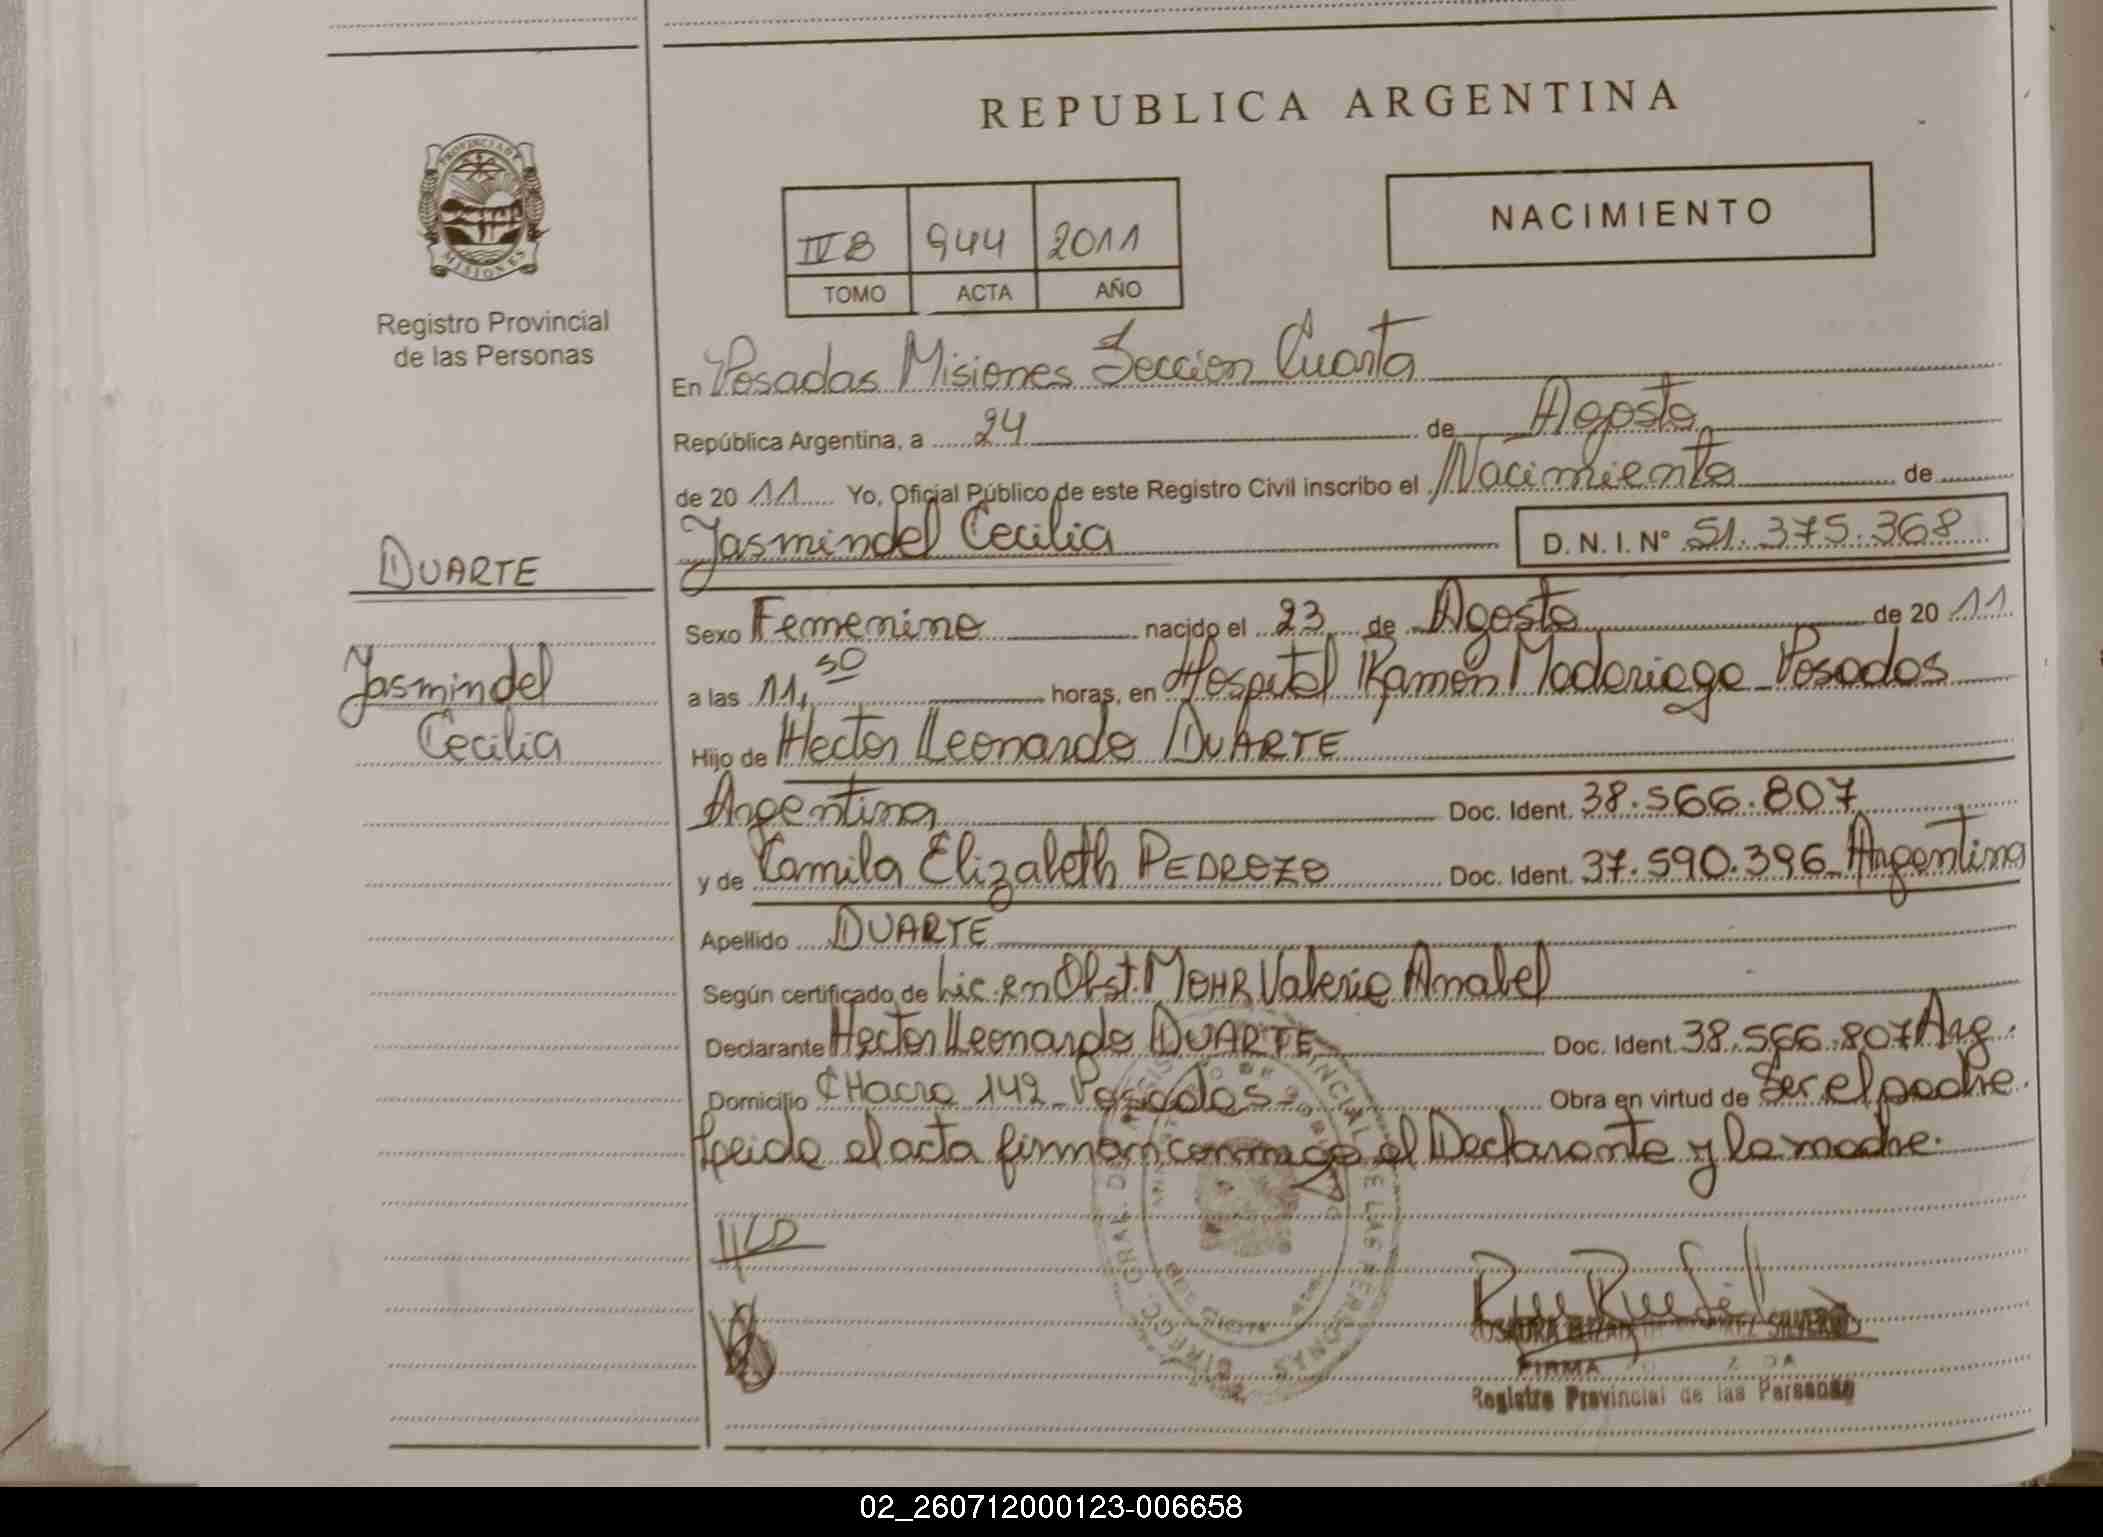 REPUBLICA ARGENTINA
PROVINCIA DE
MISIONES
Registro Provincial
de las Personas
NACIMIENTO
IV B 944 2011
TOMO ACTA AÑO
En Posadas Misiones Seccion Cuarta
República Argentina, a 24 de Agosto
de 20 11 Yo, Oficial Público de este Registro Civil inscribo el Nacimiento de
Jasmindel Cecilia D. N. I. Nº 51.375.368
DUARTE
Jasmindel
Cecilia
Sexo Femenino nacido el 23 de Agosto de 20 11
a las 11,50 horas, en Hospital Ramon Madariaga Posadas
Hijo de Hector Leonardo DUARTE
Argentina Doc. Ident. 38.566.807
y de Camila Elizabeth PEDROZO Doc. Ident. 37.590.396 Argentina
Apellido DUARTE
Según certificado de Lic. en Obst. MOHR Valeria Anabel
Declarante Hector Leonardo DUARTE Doc. Ident. 38.566.807 Arg.
Domicilio CHacra 142 Posadas Obra en virtud de Ser el padre.
Leida el acta firman conmigo el Declarante y la madre.
HLD
SILVERO
FIRMA
Registro Provincial de las Personas
02_260712000123-006658